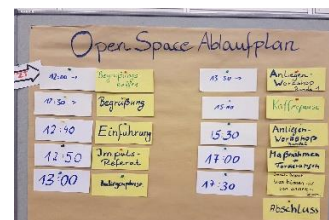 Open Space Ablaufplan
12:00
Begrüßungs
kaffee
12:30
Begrüßung
12:40
Einführung
12:50
Impuls-
Referat
13:00
13:30
Anliegen-
Workshop
Runde 1
Kaffeepause
15:30
Anliegen-
Workshop
17:00
Maßnahmen
17:30
Abschluss